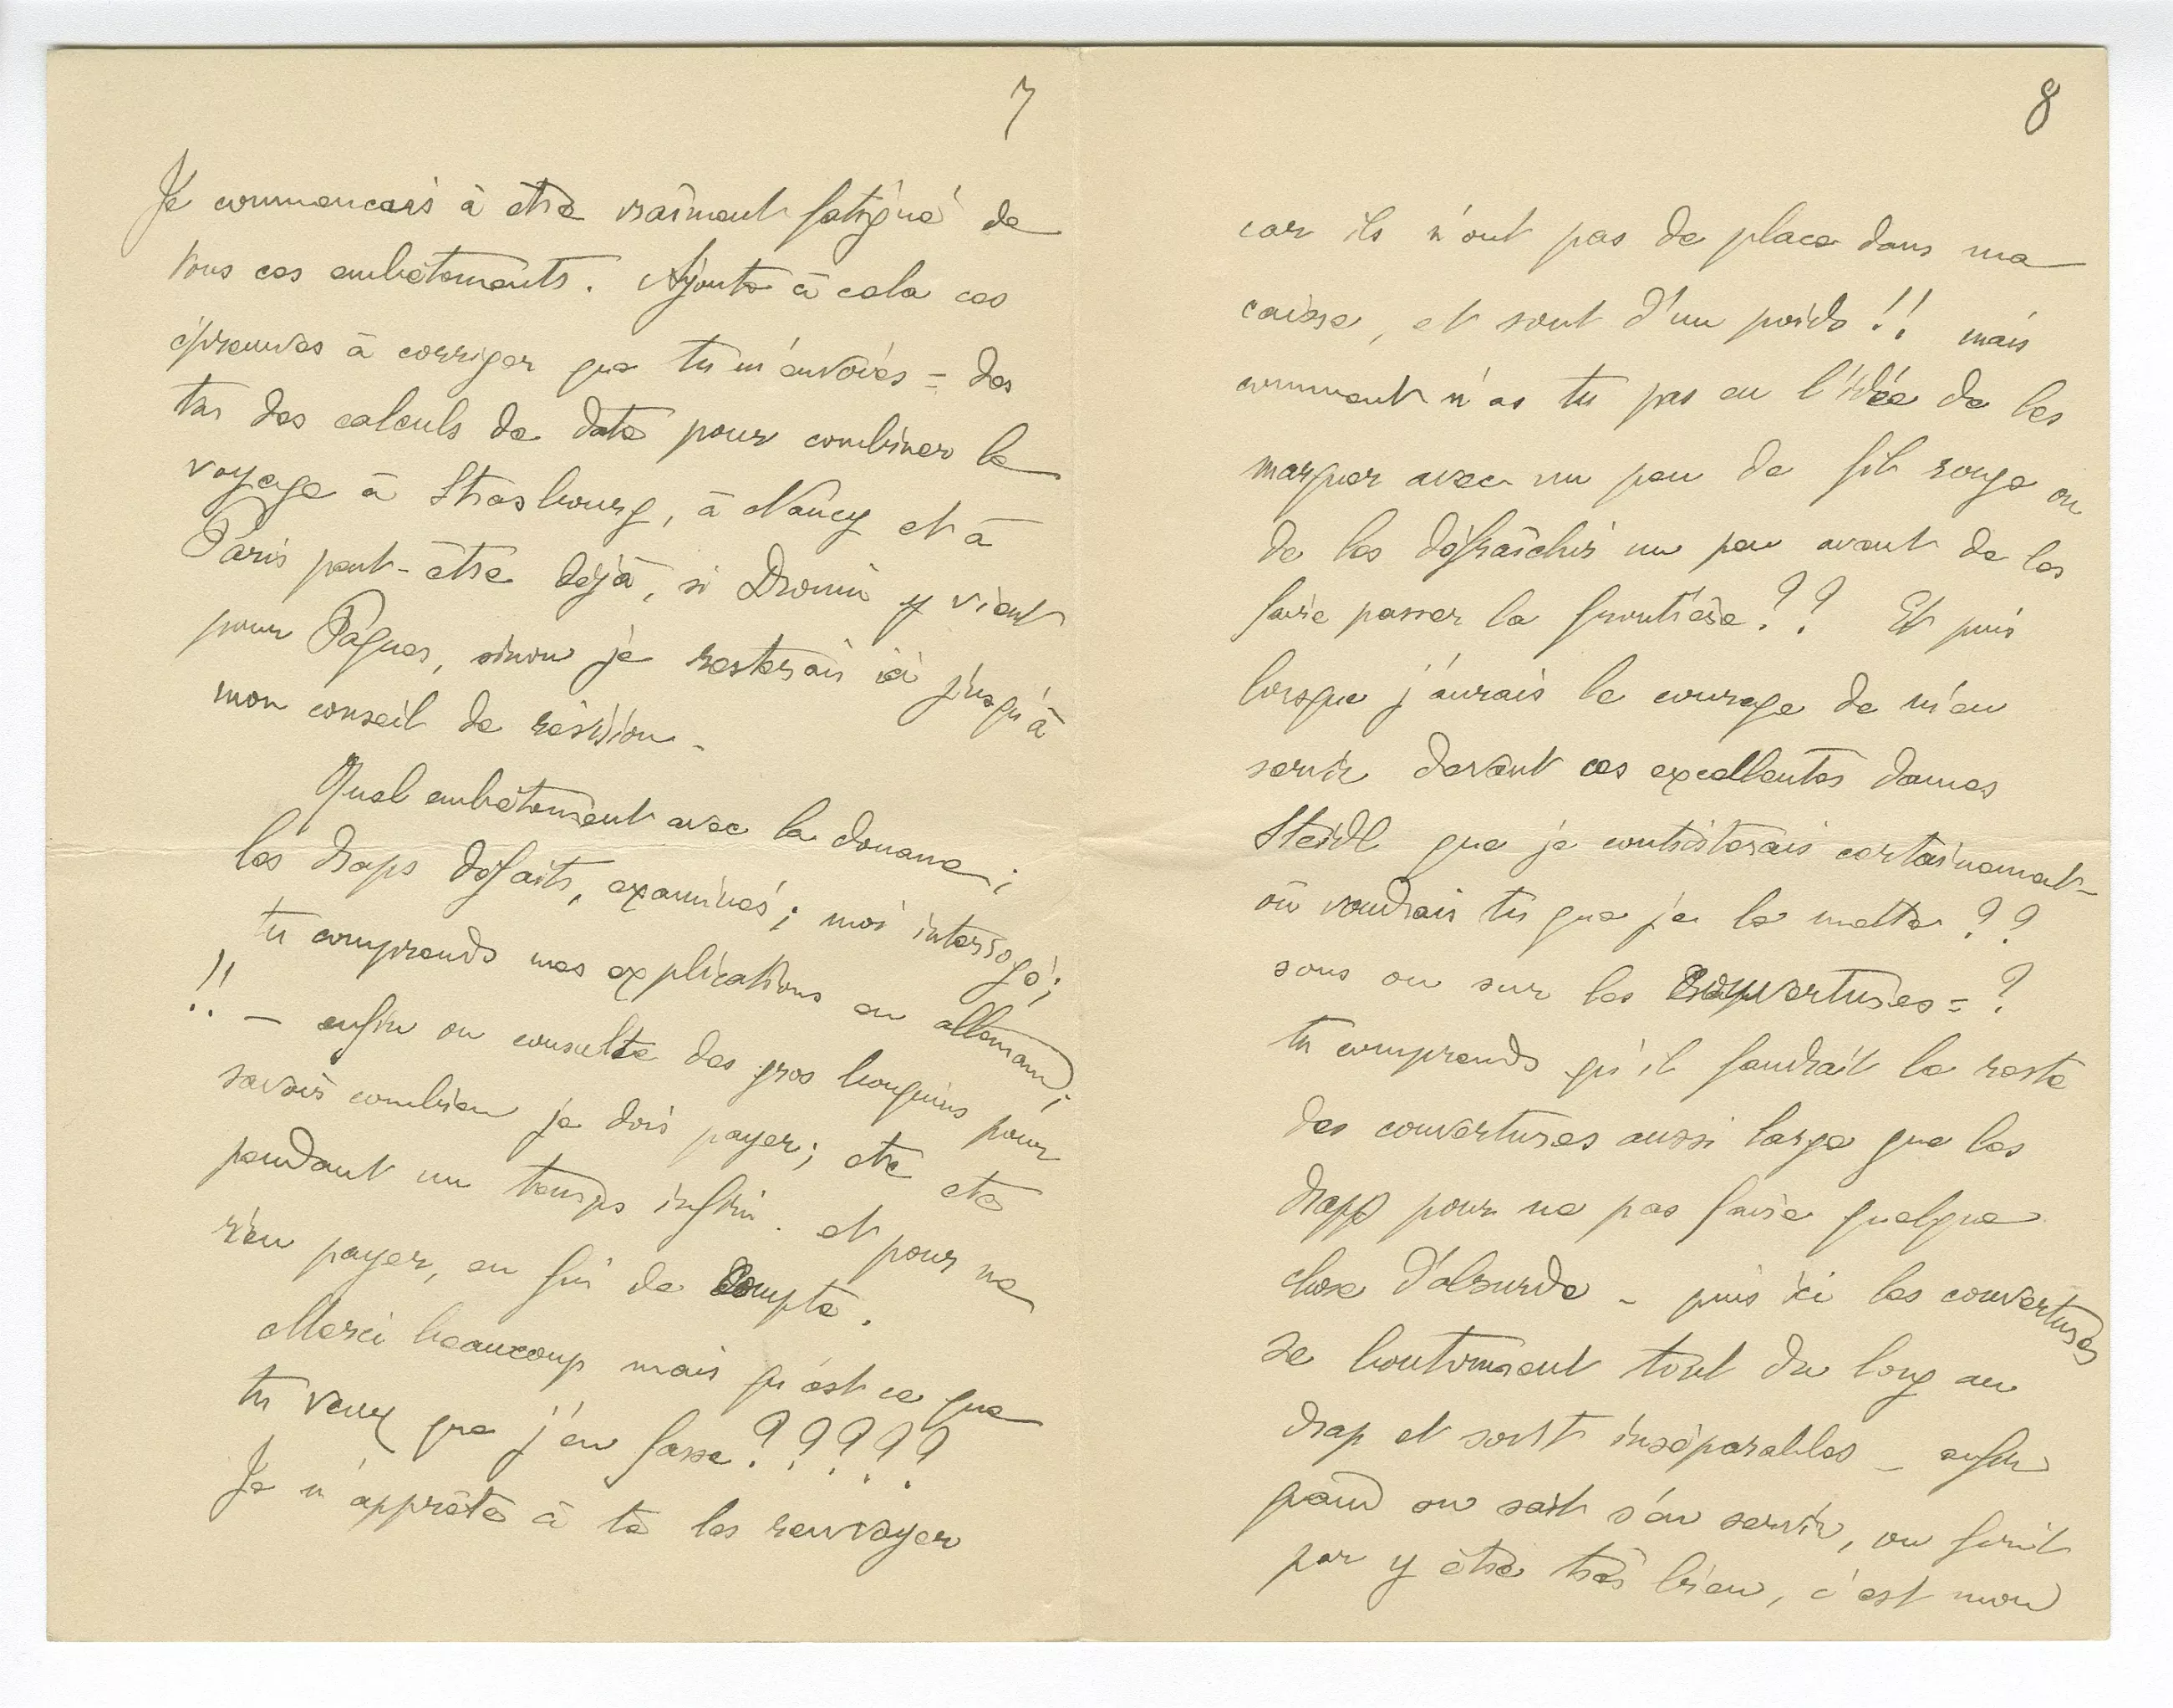 7
Je commencais à être vraiment fatigué de
tous ces embêtements. Ajoute à cela ces
épreuves à corriger que tu m'envoies = des
tas des calculs de date pour combiner le
voyage à Strasbourg, à Nancy et à
Paris peut-être déjà, si Dronin y vient
pour Pâques, sinon je resterais ici jusqu'à
mon conseil de révision -
Quel embêtement avec la douane ;
les draps défaits, examinés ; moi interrogé ;
tu comprends mes explications en allemand ;
!! - enfin on consulte des gros bouquins pour
savoir combien je dois payer ; etc etc
pendant un temps infini. et pour ne
rien payer, en fin de compte.
Merci beaucoup mais qu'est ce que
tu veux que j'en fasse ?????
Je m'apprête à te les renvoyer
8
car ils n'ont pas de place dans ma
caisse, et sont d'un poids !! mais
comment n'as tu pas eu l'idée de les
marquer avec un peu de fil rouge ou
de les défraîchir un peu avant de les
faire passer la frontière ?? Et puis
lorsque j'aurais le courage de m'en
servir devant ces excellentes dames
Steidl que je contristerais certainement -
où voudrais tu que je le mette ??
sous ou sur les couvertures = ?
tu comprends qu'il faudrait le reste
des couvertures aussi large que les
draps pour ne pas faire quelque
chose d'absurde - puis ici les couvertures
se boutonnent tout du long au
drap et sont inséparables - enfin
quand on sait s'en servir, on finit
par y être très bien, c'est mon